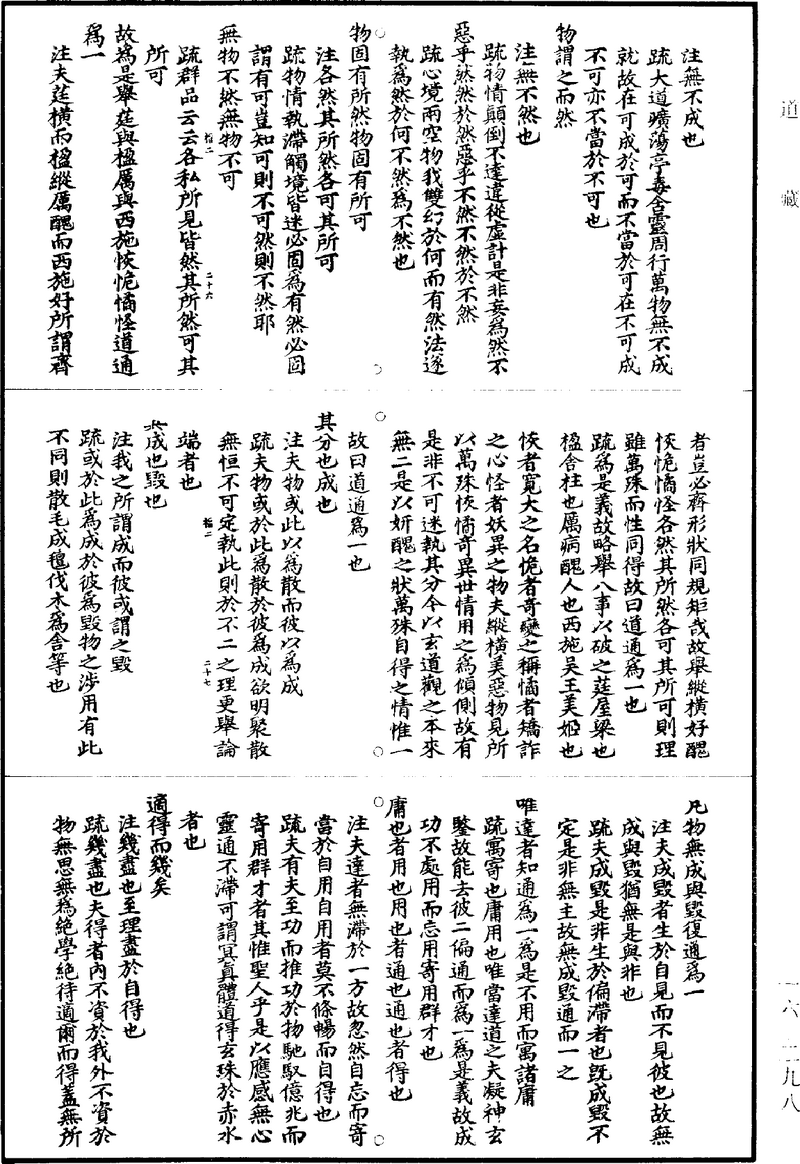 道藏
注無不成也
疏大道曠蕩亭毒含靈周行萬物無不成
就故在可成於可而不當於可在不可成
不可亦不當於不可也
物謂之而然
注無不然也
疏物情顛倒不達違從虛計是非妄為然不
惡乎然然於然惡乎不然不然於不然
疏心境兩空物我雙幻於何而有然法遂
執為然於何不然為不然也
物固有所然物固有所可
注各然其所然各可其所可
疏物情執滯觸境皆迷必固為有然必固
謂有可豈知可則不可然則不然耶
無物不然無物不可
疏群品云云各私所見皆然其所然可其
二十六
所可
故為是舉莛與楹厲與西施恢恑憰怪道通
為一
注夫莛橫而楹縱厲醜而西施好所謂齊
者豈必齊形狀同規矩哉故舉縱橫好醜
恢恑憰怪各然其所然各可其所可則理
雖萬殊而性同得故曰道通為一也
疏為是義故略舉八事以破之莛屋梁也
楹舍柱也厲病醜人也西施吳王美姬也
恢者寬大之名恑者奇變之稱憰者矯詐
之心怪者妖異之物夫縱橫美惡物見所
以萬殊恢憰奇異世情用之為傾側故有
是非不可迷執其分今以玄道觀之本來
無二是以妍醜之狀萬殊自得之情惟一
故曰道通為一也
其分也成也
注夫物或此以為散而彼以為成
疏夫物或於此為散於彼為成欲明聚散
無恒不可定執此則於不二之理更舉論
二十七
端者也
其成也毀也
注我之所謂成而彼或謂之毀
疏或於此為成於彼為毀物之涉用有此
不同則散毛成氊伐木為舍等也
凡物無成與毀復通為一
注夫成毀者生於自見而不見彼也故無
成與毀猶無是與非也
疏夫成毀是非生於偏滯者也既成毀不
定是非無主故無成毀通而一之
唯達者知通為一為是不用而寓諸庸
疏寓寄也庸用也唯當達道之夫凝神玄
鑒故能去彼二偏通而為一為是義故成
功不處用而忘用寄用群才也
庸也者用也用也者通也通也者得也
注夫達者無滯於一方故忽然自忘而寄
當於自用自用者莫不條暢而自得也
疏夫有夫至功而推功於物馳馭億兆而
寄用群才者其惟聖人乎是以應感無心
靈通不滯可謂冥真體道得玄珠於赤水
者也
適得而幾矣
注幾盡也至理盡於自得也
疏幾盡也夫得者內不資於我外不資於
物無思無為絕學絕待適爾而得蓋無所
一六—二九八